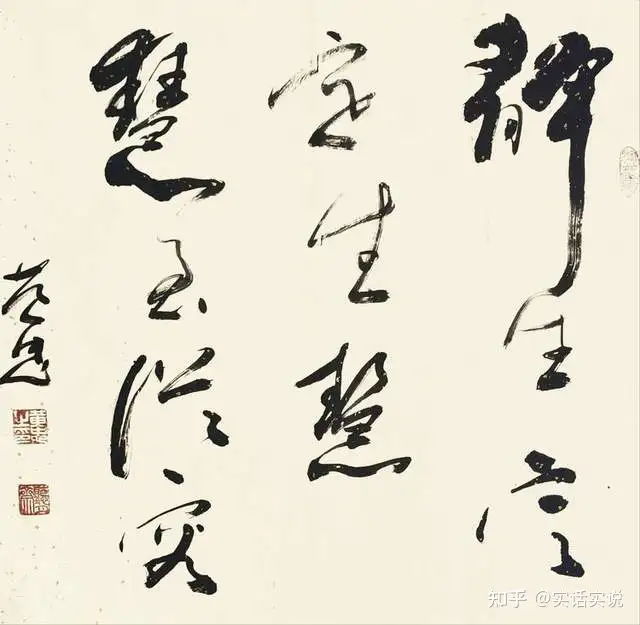 靜生定
定生慧
慧至從容
知乎 @实话实说